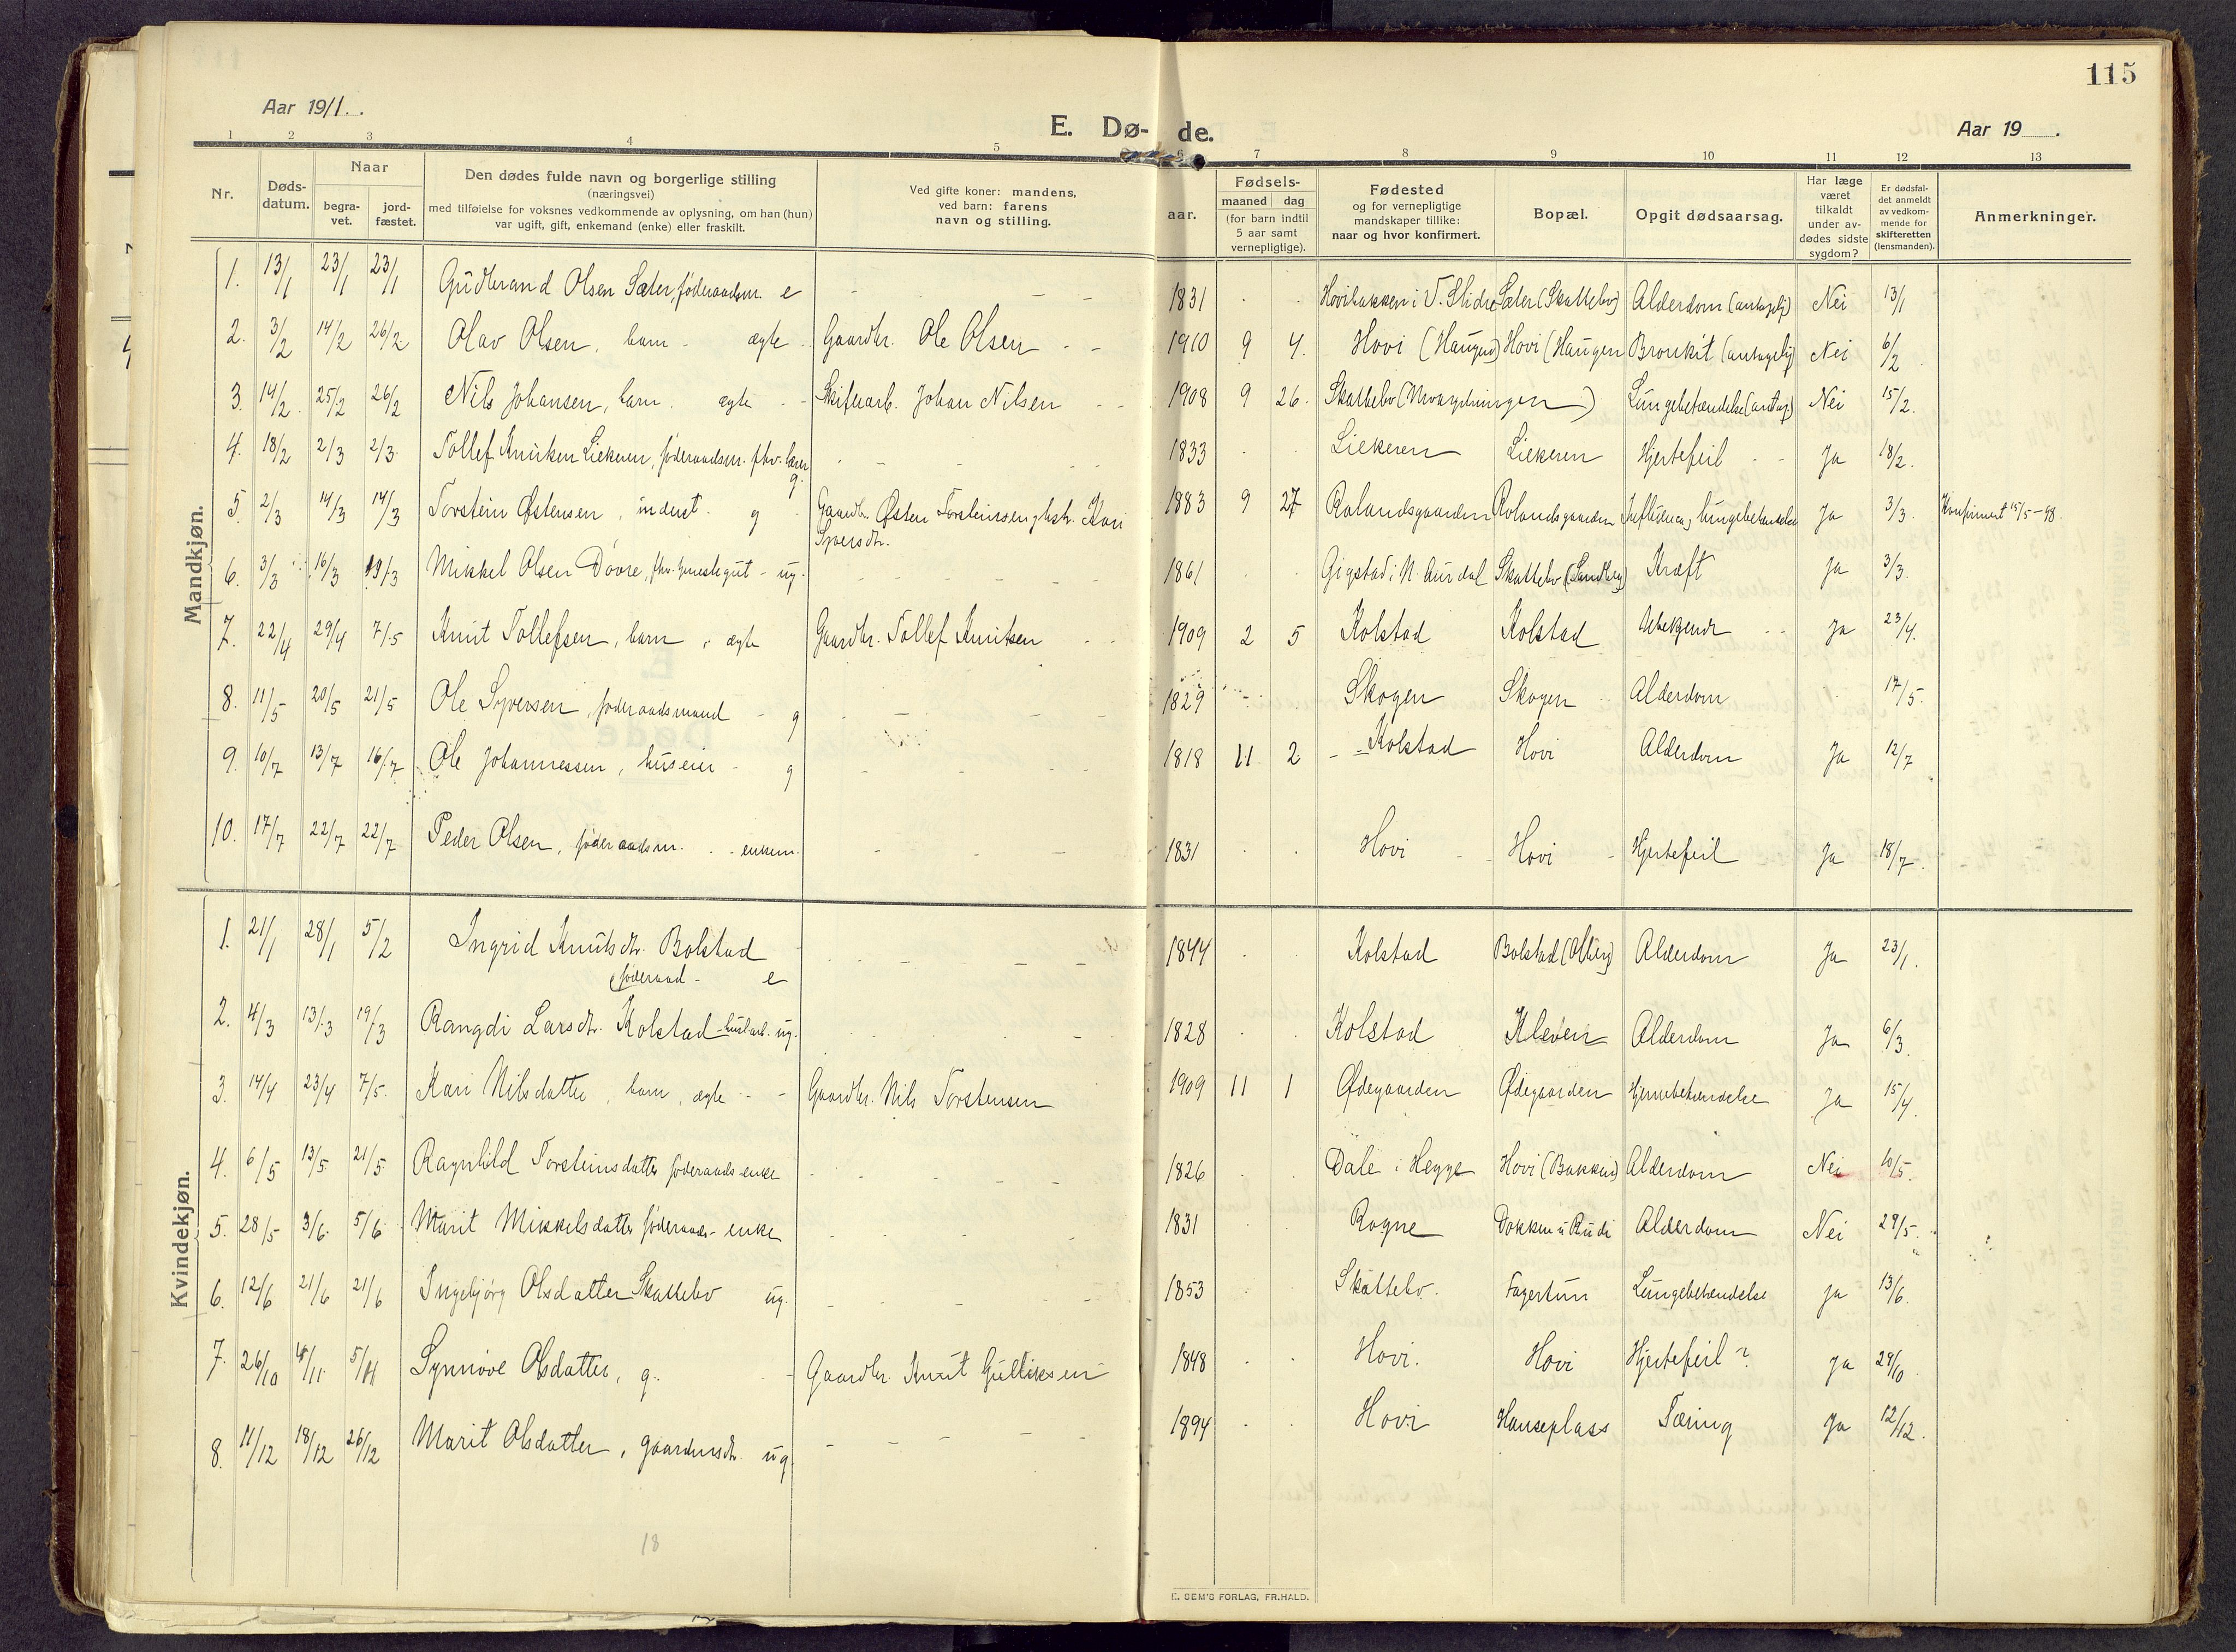 115
Aar 1911.
E. Dø- de.
Aar 19
1 2 3 4 5 6 7 8 9 10 11 12 13
Nr.
Døds-datum.
Naar
begra-vet.
jord-fæstet.
Den dødes fulde navn og borgerlige stilling
(næringsvei)
med tilføielse for voksnes vedkommende av oplysning, om han (hun)
var ugift, gift, enkemand (enke) eller fraskilt.
Ved gifte koner: mandens,
ved barn: farens
navn og stilling.
Fødsels-
aar.
maaned dag
(for barn indtil
5 aar samt
vernepligtige).
Fødested
og for vernepligtige
mandskaper tillike:
naar og hvor konfirmert.
Bopæl.
Opgit dødsaarsag.
Har læge
været
tilkaldt
under av-
dødes sidste
sygdom?
Er dødsfal-
det anmeldt
av vedkom-
mende for
skifteretten
(lensmanden).
Anmerkninger.
Mandkjøn.
1. 13/1 23/1 23/1 Gudbrand Olsen Sæter, føderaadsm. e - - - 1831 Hovibakken i V. Slidre Sæter (Skattebo) Alderdom (antagelig) Nei 13/1
2. 3/2 14/2 26/2 Olav Olsen, barn - ægte - Gaardbr. Ole Olsen - - 1910 9 4. Hovi (Haugen) Hovi (Haugen Bronkit (antagelig) Nei 6/2
3. 14/2 25/2 26/2 Nils Johansen, barn. ægte - - Skiferarb. Johan Nilsen - - 1908 9 26. Skattebo Lungebetændelse (antag.) Nei 15/2.
4. 18/2 2/3 2/3 Tollef Knutsen Liekeren, føderaadsm. fhv. lærer g. 1833 Liekeren Liekeren Hjertefeil - - Ja 18/2.
5. 2/3 14/3 14/3 Torstein Østensen, inderst. g - Gaardbr. Østen Torsteinsen og hstr. Kari 1883 9 27 Rolandsgaarden Rolandsgaarden Influenca, lungebetændelse Ja 3/3. Konfirmert 15/5-98.
Syversdtr.
6. 3/3 16/3 19/3 Mikkel Olsen Dovre, fhv. tjenestegut - ug. - - - 1861 Gigstad i N. Aurdal Skattebo (Sandberg) Kræft Ja 3/3.
7. 22/4 29/4 7/5 Knut Tollefsen, barn, ægte Gaardbr. Tollef Knutsen - - 1909 2 5 Kolstad Kolstad Ubekjendt - - Ja 23/4.
8. 11/5 20/5 21/5 Ole Syversen, føderaadsmand - g - - - 1829 Skogen Skogen Alderdom 17/5.
9. 10/7 13/7 16/7 Ole Johannessen, huseier - g - - - 1818 11 2 - Kolstad Hovi Alderdom Ja 12/7
10. 17/7 22/7 22/7 Peder Olsen, føderaadsm. - - enkem. - - - 1831 Hovi - Hovi - Hjertefeil Ja 18/7.
Kvindekjøn.
1. 21/1 28/1 5/2 Ingrid Knutsdtr. Bolstad - - - 1844 Kolstad Bolstad Alderdom Ja 23/1.
føderaad - e
2. 4/3 13/3 19/3 Rangdi Larsdtr. Kolstad - husarb. ug. - 1828 Kolstad Kleven Alderdom Ja 6/3.
3. 14/4 23/4 7/5. Kari Nilsdatter, barn, ægte - - Gaardbr. Nils Torstensen 1909 11 1 Ødegaarden Ødegaarden Hjernebetændelse Ja 15/4.
4. 6/5 13/5. 21/5. Ragnhild Torsteinsdatter føderaads enke - - - 1826 Dale i Hegge Hovi (Bakken) Alderdom Nei 10/5.
5. 28/5 3/6. 5/6. Marit Mikkelsdatter føderaads- enke - - - 1831 Rogne Dokken u Rudi Alderdom Nei 29/5.
6. 12/6 21/6 21/6 Ingebjørg Olsdatter Skattebo ug. - - - 1853 Skattebo. Fagertun Lungebetændelse Ja 13/6.
7. 26/10 4/11. 5/11 Synnøve Olsdatter, g. - Gaardbr. Knut Gulliksen 1848 Hovi. Hovi Hjertefeil? Ja 29/10
8. 11/12 18/12 26/12 Marit Olsdatter, gaardmsdtr. ug. - - - 1894 Hovi Hauseplass Tæring Ja 12/12.
18
E. SEM'S FORLAG, FR.HALD.